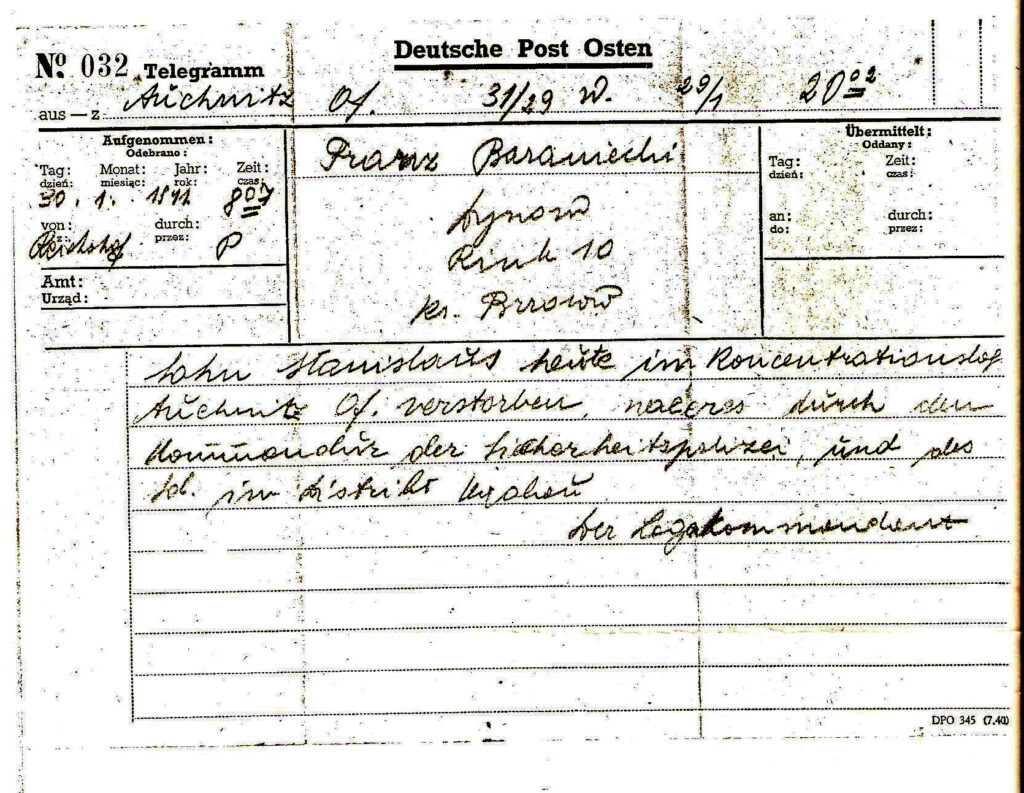 Deutsche Post Osten
№ 032 Telegramm
aus — z Auchwitz Of. 31/29 W. 29/1 20 02
Aufgenommen:
Odebrano:
Tag: Monat: Jahr: Zeit:
dzień: miesiąc: rok: czas:
30. 1. 1941 8 07
von: durch:
z: przez:
Reichshof P
Amt:
Urząd:
Franz Baraniecki
Dynow
Rink 10
kr. Brzozow
Übermittelt:
Oddany:
Tag: Zeit:
dzień: czas:
an: durch:
do: przez:
Sohn Stanislaus heute im Koncentrationslog
Auchwitz Of. verstorben, naeeres durch den
Kommondür der Sicherheitspolizei, und des
Sd. im Distrikt
Der Legakommendent
DPO 345 (7.40)